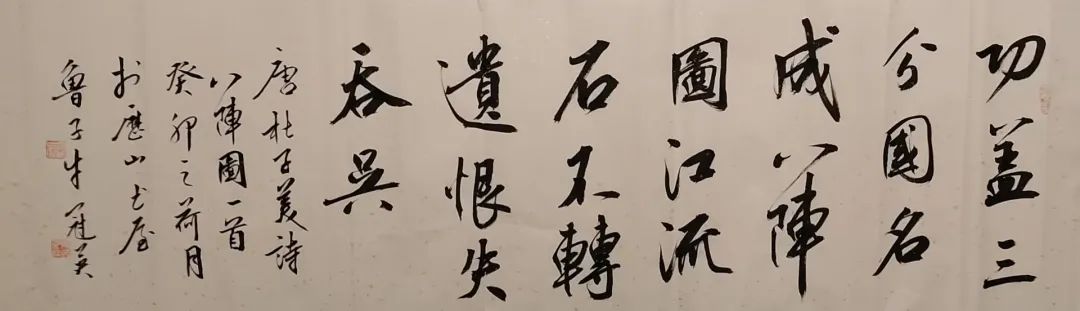 功盖三
分國名
成八陣
圖江流
石不轉
遺恨失
吞吳
唐杜子美詩
八陣圖一首
癸卯之荷月
於歷山屋
魯子牛冠